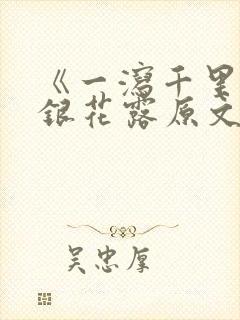 《一泻千里
银花露原文
吴忠厚